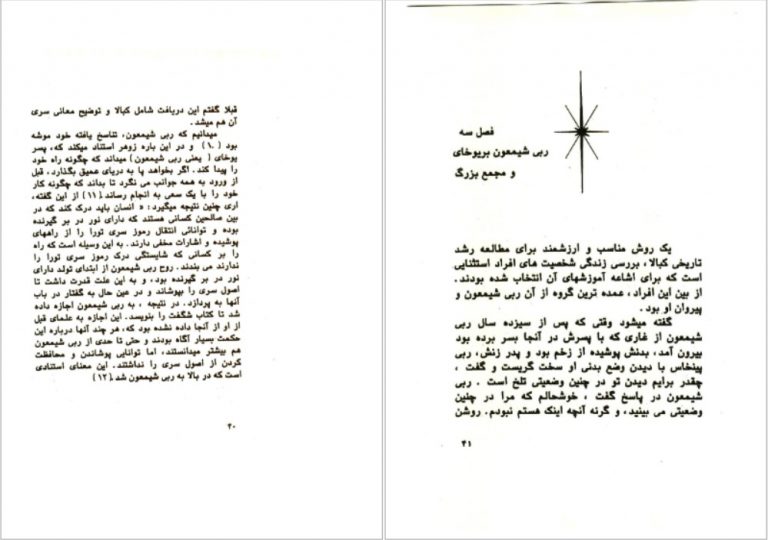 قبلا گفتم این دریافت شامل کبالا و توضیح معانی سری
آن هم میشد.
میدانیم که ربی شیمعون، تناسخ یافته خود موشه
بود (۱۰) و در این باره زوهر استناد میکند که، پسر
یوخای ( یعنی ربی شیمعون) میداند که چگونه راه خود
را پیدا کند. اگر بخواهد پا به دریای عمیق بگذارد، قبل
از ورود به همه جوانب می نگرد تا بداند که چگونه کار
خود را با یک سعی به انجام رساند.(۱۱) از این گفته،
اری چنین نتیجه میگیرد: « انسان باید درک کند که در
بین صالحین کسانی هستند که دارای نور در بر گیرنده
بوده و توانائی انتقال رموز سری تورا را از راههای
پوشیده و اشارات مخفی دارند. به این وسیله است که راه
را بر کسانی که شایستگی درک رموز سری تورا را
ندارند می بندند. روح ربی شیمعون از ابتدای تولد دارای
نور در بر گیرنده بود، و به این علت قدرت داشت تا
اصول سری را بپوشاند و در عین حال به گفتار در باب
آنها به پردازد. در نتیجه ، به ربی شیمعون اجازه داده
شد تا کتاب شگفت را بنویسد. این اجازه به علمای قبل
از او از آنجا داده نشده بود که، هر چند آنها درباره این
حکمت بسیار آگاه بودند و حتی تا حدی از ربی شیمعون
هم بیشتر میدانستند، اما توانایی پوشاندن و محافظت
کردن از اصول سری را نداشتند. این معنای استنادی
است که در بالا به ربی شیمعون شد.(۱۲)
۴۰
فصل سه
ربی شیمعون بریوخای
و مجمع بزرگ
یک روش مناسب و ارزشمند برای مطالعه رشد
تاریخی کبالا، بررسی زندگی شخصیت های افراد استثنایی
است که برای اشاعه آموزشهای آن انتخاب شده بودند.
از بین این افراد، عمده ترین گروه از آن ربی شیمعون و
پیروان او بود.
گفته میشود وقتی که پس از سیزده سال ربی
شیمعون از غاری که با پسرش در آنجا بسر برده بود
بیرون آمد، بدنش پوشیده از زخم بود و پدر زنش، ربی
پینخاس با دیدن وضع بدنی او سخت گریست و گفت ،
چقدر برایم دیدن تو در چنین وضعیتی تلخ است . ربی
شیمعون در پاسخ گفت ، خوشحالم که مرا در چنین
وضعیتی می بینید، و گرنه آنچه اینک هستم نبودم. روشن
۴۱